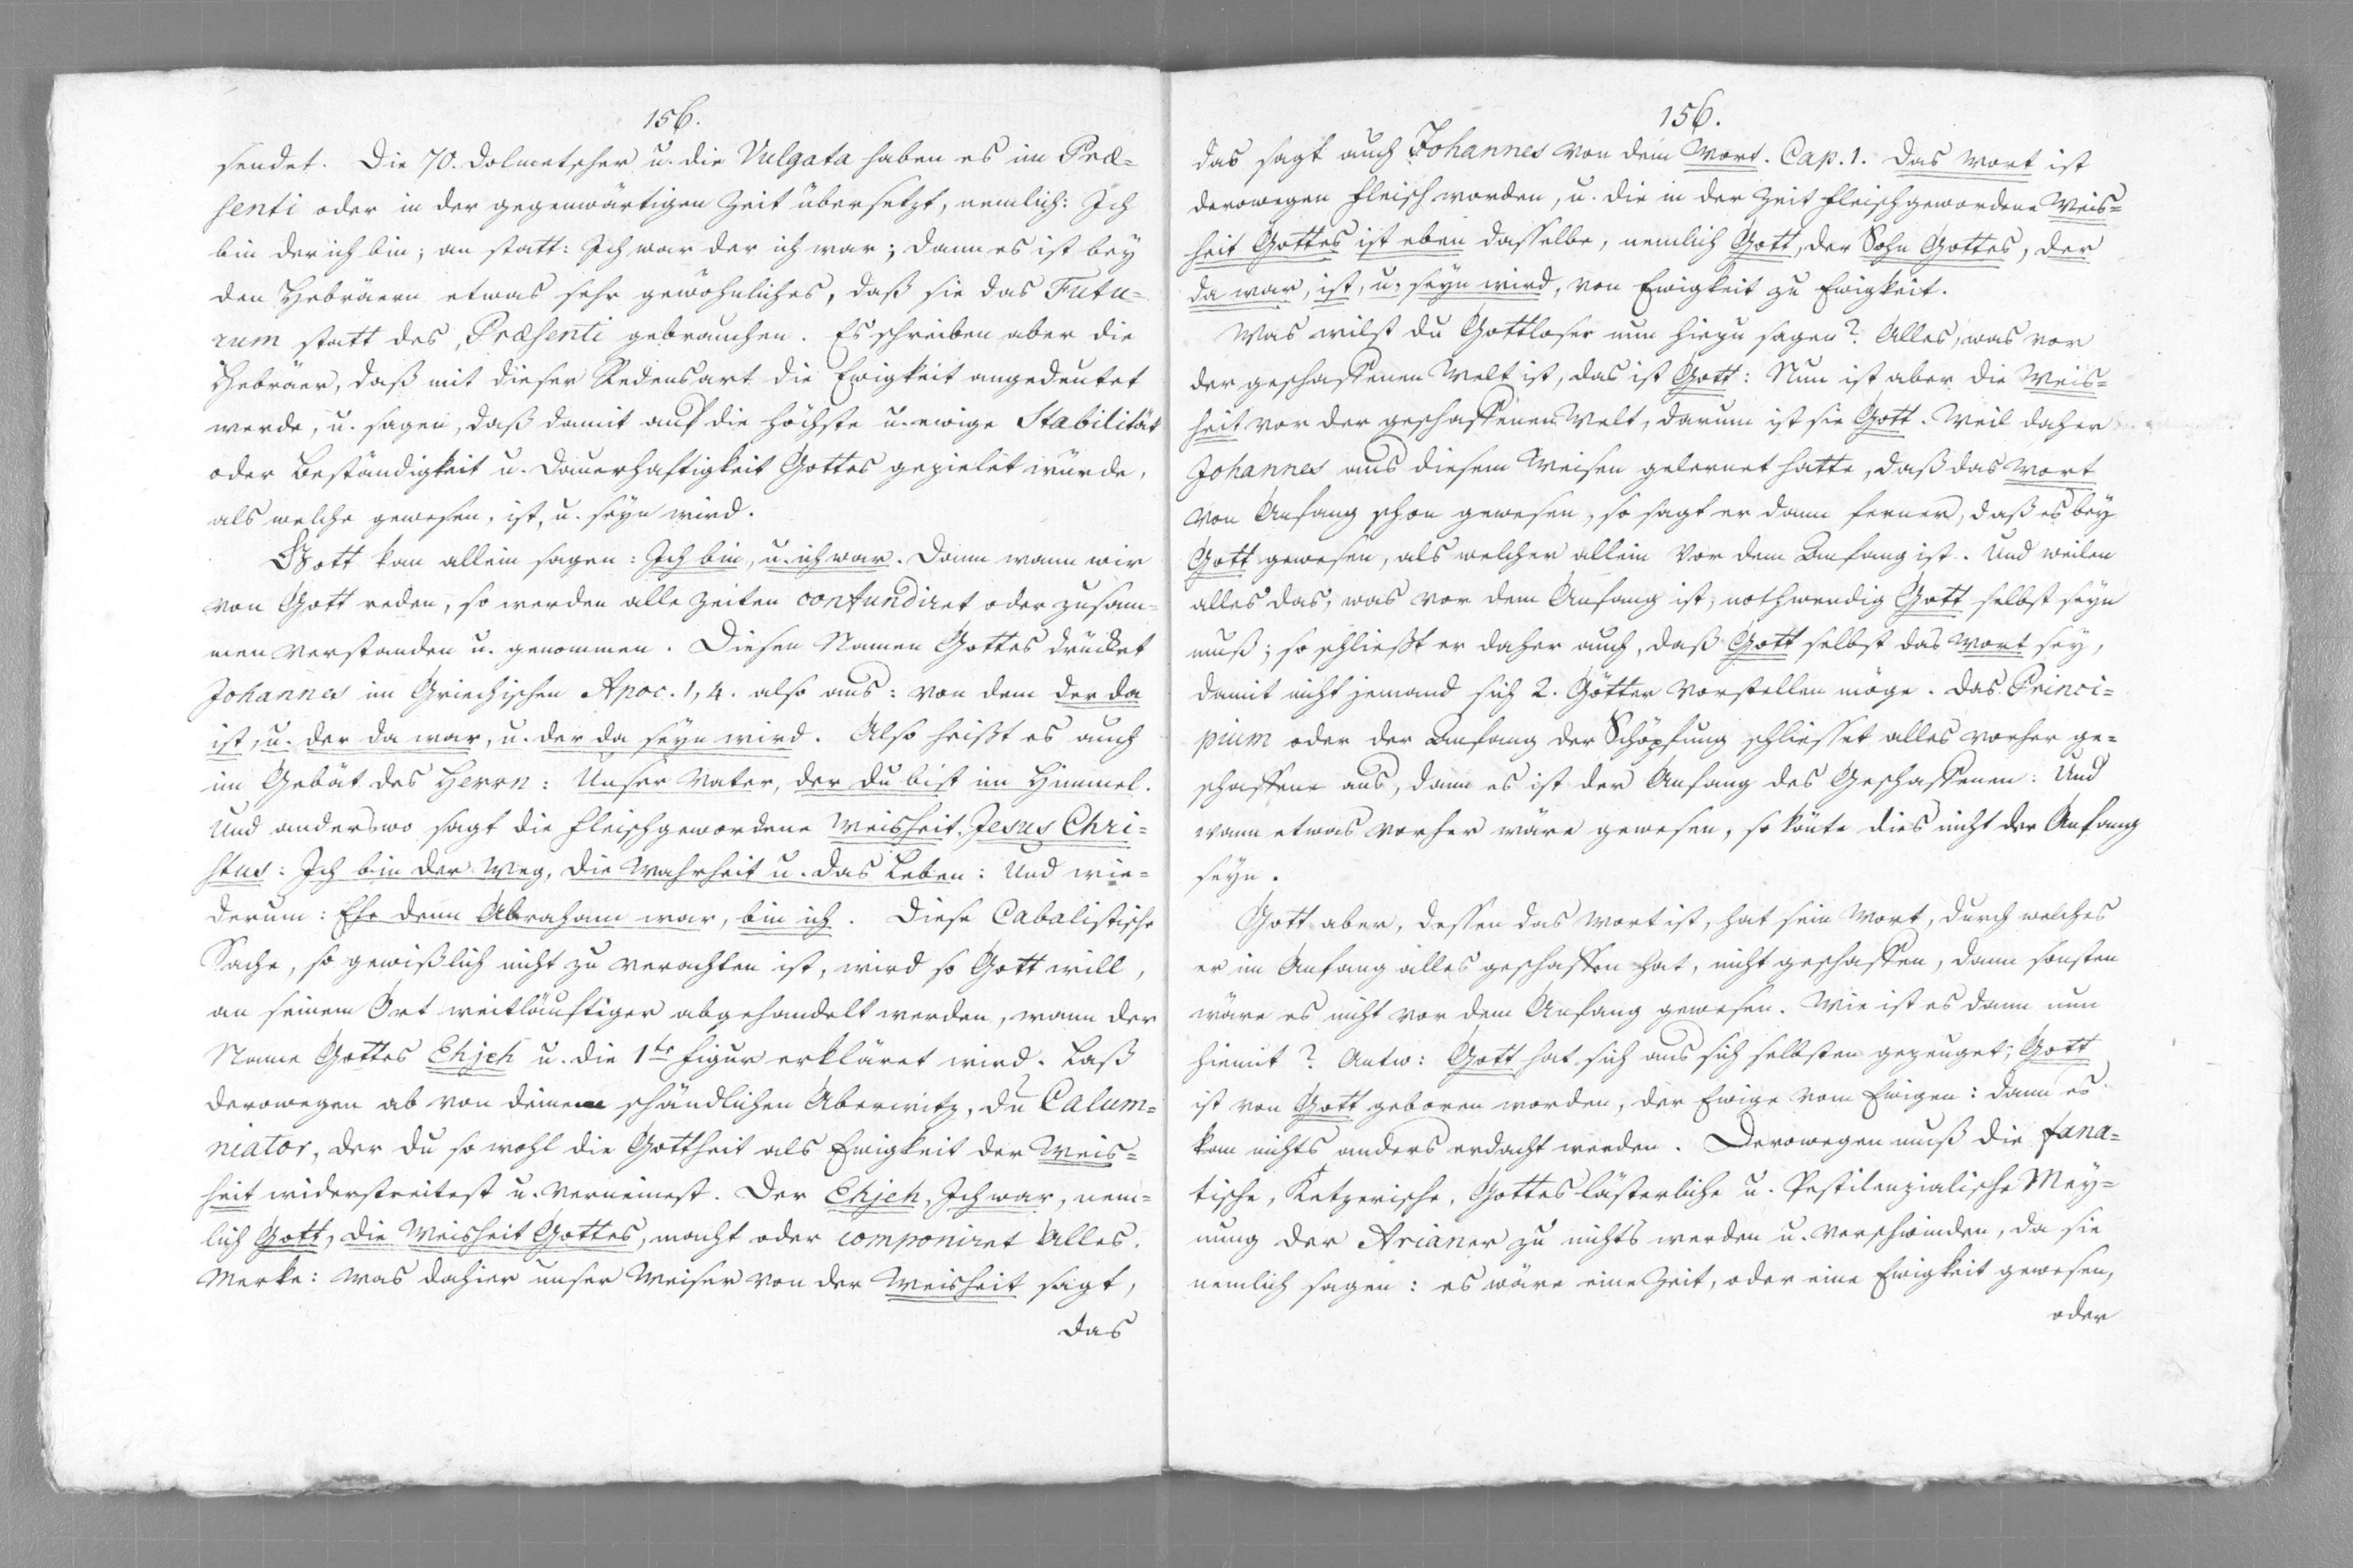 156.
sendet. Die 70. Dolmetscher u. die Vulgata haben es im Præ-
senti oder in der gegenwärtigen Zeit übersetzt, nemlich: Ich
bin der ich bin; an statt: Ich war der ich war; dann es ist bey
den Hebräern etwas sehr gewöhnliches, daß sie das Futu-
rum statt des Præsenti gebrauchen. Es schreiben aber die
Hebräer, daß mit dieser Redensart die Ewigkeit angedeutet
werde, u. sagen, daß damit auf die höchste u. ewige Stabilität
oder Beständigkeit u. Dauerhaftigkeit Gottes gezielet würde,
als welche gewesen, ist, u. seyn wird.
Gott kan allein sagen: Ich bin, u. ich war. Dann wann wir
von Gott reden, so werden alle Zeiten confundiret oder zusam-
men verstanden u. genommen. Diesen Namen Gottes drücket
Johannes im Griechischen Apoc. 1, 4. also aus: von dem der da
ist, u. der da war, u. der da seyn wird. Also heißt es auch
im Gebät des Herrn: Unser Vater, der du bist im Himmel.
Und anderswo sagt die fleischgewordene Weisheit, Jesus Chri-
stus: Ich bin der Weg, die Wahrheit u. das Leben: Und wie-
derum: Ehe denn Abraham war, bin ich. Diese Cabalistische
Sache, so gewißlich nicht zu verachten ist, wird so Gott will,
an seinem Ort weitläuftiger abgehandelt werden, wann der
Name Gottes Ehjeh u. die 1te Figur erkläret wird. Laß
derowegen ab von deinem schändlichen Aberwitz, du Calum-
niator, der du so wohl die Gottheit als Ewigkeit der Weis-
heit widerstreitest u. verneinest. Der Ehjeh, Ich war, nem-
lich Gott, die Weisheit Gottes, macht oder componiret Alles.
Merke: was dahier unser Weiser von der Weisheit sagt,
das
156.
das sagt auch Johannes von dem Wort. Cap. 1. Das Wort ist
derowegen Fleisch worden, u. die in der Zeit fleischgewordene Weis-
heit Gottes ist eben dasselbe, nemlich Gott, der Sohn Gottes, der
da war, ist, u. seyn wird, von Ewigkeit zu Ewigkeit.
Was wilst du Gottloser nun hiezu sagen? Alles, was vor
der geschaffenen Welt ist, das ist Gott: Nun ist aber die Weis-
heit vor der geschaffenen Welt, darum ist sie Gott. Weil daher
Johannes aus diesem Weisen gelernet hatte, daß das Wort
von Anfang schon gewesen, so sagt er dann ferner, daß es bey
Gott gewesen, als welcher allein vor dem Anfang ist. Und weilen
alles das, was vor dem Anfang ist, nothwendig Gott selbst seyn
muß; so schließt er daher auch, daß Gott selbst das Wort sey,
damit nicht jemand sich 2. Götter vorstellen möge. Das Princi-
pium oder der Anfang der Schöpfung schliesset alles vorher ge-
schaffene aus, dann es ist der Anfang des Geschaffenen: Und
wann etwas vorher wäre gewesen, so könte dies nicht der Anfang
seyn.
Gott aber, dessen das Wort ist, hat sein Wort, durch welches
er im Anfang alles geschaffen hat, nicht geschaffen, dann sonsten
wäre es nicht vor dem Anfang gewesen. Wie ist es dann nun
hiemit? Antw: Gott hat sich aus sich selbsten gezeuget; Gott
ist von Gott geboren worden, der Ewige vom Ewigen: dann es
kan nichts anders erdacht werden. Derowegen muß die fana-
tische, Ketzerische, Gotteslästerliche u. Pestilenzialische Mey-
nung der Arianer zu nichts werden u. verschwinden, da sie
nemlich sagen: es wäre eine Zeit, oder eine Ewigkeit gewesen,
oder